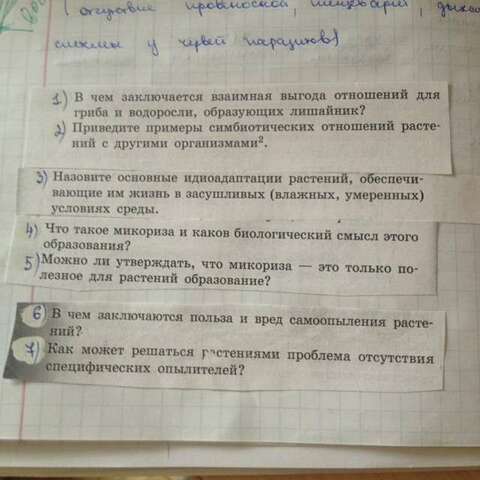 отсутствие кровеносной, пищеварит, дыхат
систем у червей паразитов)
1) В чем заключается взаимная выгода отношений для
гриба и водоросли, образующих лишайник?
2) Приведите примеры симбиотических отношений расте-
ний с другими организмами².
3) Назовите основные идиоадаптации растений, обеспечи-
вающие им жизнь в засушливых (влажных, умеренных)
условиях среды.
4) Что такое микориза и каков биологический смысл этого
образования?
5) Можно ли утверждать, что микориза — это только по-
лезное для растений образование?
6) В чем заключаются польза и вред самоопыления расте-
ний?
7) Как может решаться растениями проблема отсутствия
специфических опылителей?